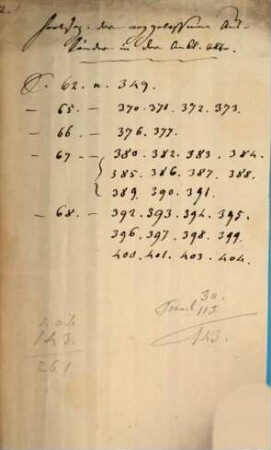 2.
Fortsez. der
in der
S. 62. n. 349.
— 65 — 370. 371. 372. 373.
— 66 — 376. 377.
— 67 — 380. 382. 383. 384.
385. 386. 387. 388.
389. 390. 391.
— 68 — 392. 393. 394. 395.
396. 397. 398. 399.
400. 401. 403. 404.
30.
113
143.
143.
261